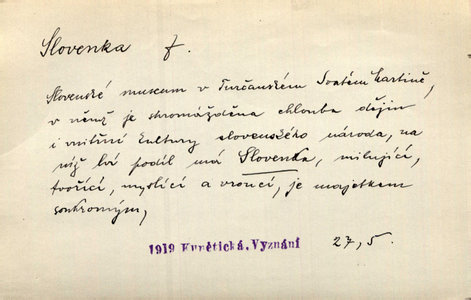 Slovenka f.
Slovenské museum v Turčanském Svatém Martině,
v němž je shromážděna chlouba dějin
i vnitřní kultury slovenského národa, na
níž lví podíl má Slovenka, milující,
tvořící, myslící a vroucí, je majetkem
soukromým,
1919 Kunětická, Vyznání 27,5.